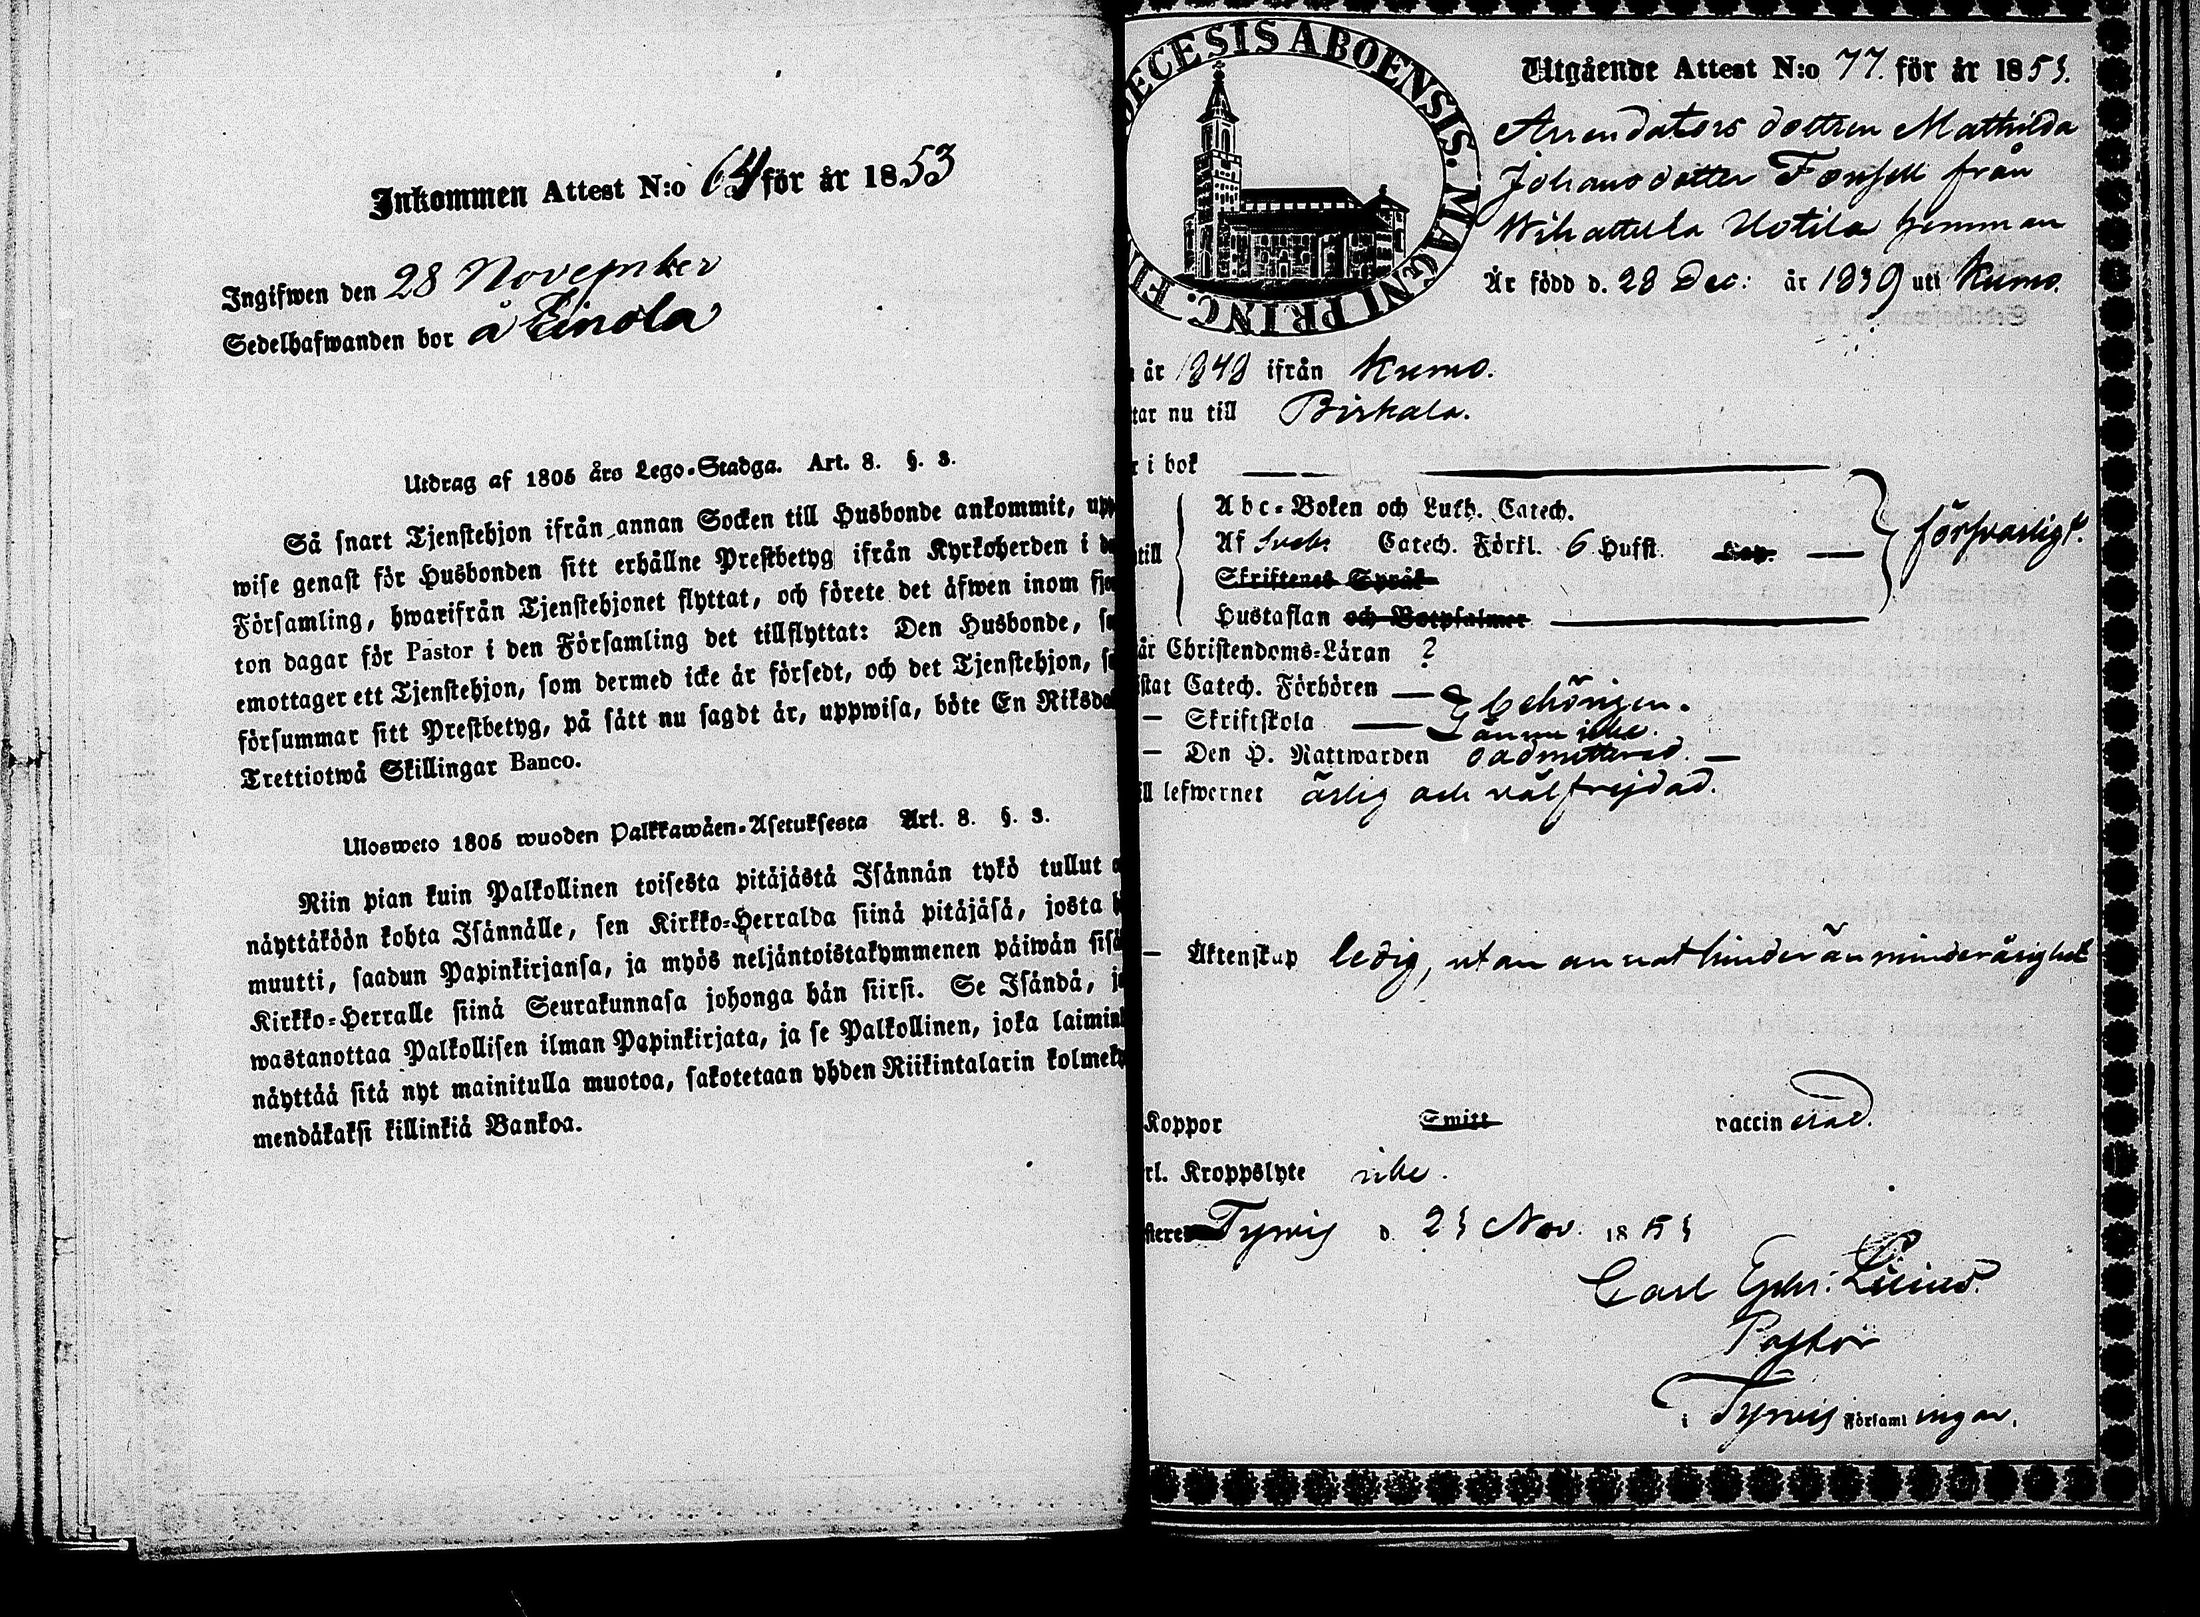 Inkommen Attest N:o 64 för år 1853
Ingifwen den 28 November
Sedelhafwanden bor å Einola
Utdrag af 1805 års Lego-Stadga. Art. 8. §. 3.
Så snart Tjenstehjon ifrån annan Socken till Husbonde ankommit, upp
wise genast för Husbonden sitt erhållne Prestbetyg ifrån Kyrkoherden i d
Församling, hwarifrån Tjenstehjonet flyttat, och förete det äfwen inom fjo
ton dagar för Pastor i den Församling det tillflyttat: Den Husbonde, s
emottager ett Tjenstehjon, som dermed icke är försedt, och det Tjenstehjon, s
försummar sitt Prestbetyg, på sätt nu sagdt är, uppwisa, böte En Riksda
Trettiotwå Skillingar Banco.
Ulosweto 1805 wuoden Palkkawäen-Asetuksesta Art. 8. §. 3.
Niin pian kuin Palkollinen toisesta pitäjästä Isännän tykö tullut o
näyttäköön kohta Isännälle, sen Kirkko-Herralda siinä pitäjäsä, josta h
muutti, saadun Papinkirjansa, ja myös neljäntoistakymmenen päiwän sisä
Kirkko-Herralle siinä Seurakunnasa johonga hän siirsi. Se Isändä, j
wastanottaa Palkollisen ilman Papinkirjata, ja se Palkollinen, joka laimin
näyttää sitä nyt mainitulla muotoa, sakotetaan yhden Riikintalarin kolmeky
mendäkaksi killinkiä Bankoa.
DECESIS ABOENSIS. MAGNI PRINC. FI
Utgående Attest N:o 77. för år 1853.
Arrendators dottren Mathilda
Johansdotter Fonsell från
Wihattula Uotila hemman
Är född d. 28 Dec: år 1839 uti Kumo.
år 1848 ifrån Kumo.
tar nu till Birkala.
r i bok
till
Abc-Boken och Luth. Catech.
Af Sveb. Catech. Förkl. 6 Hufst. Cap. försvarligt.
Skriftenes Språk
Hustaflan och Botpsalmer
år Christendoms-Läran ?
stat Catech. Förhören behörigen.
— Skriftskola ännu icke.
— Den H. Nattwarden oadmitterad.
ll lefwernet ärlig och välfrejdad.
— Äktenskap ledig, utan annat hinder än minderårighet
Koppor Smitt vaccinerad.
rl. Kroppslyte icke.
Tyrvis d. 23 Nov. 1853
Carl Ephr: Lilius.
Pastor
i Tyrvis Församlingar.